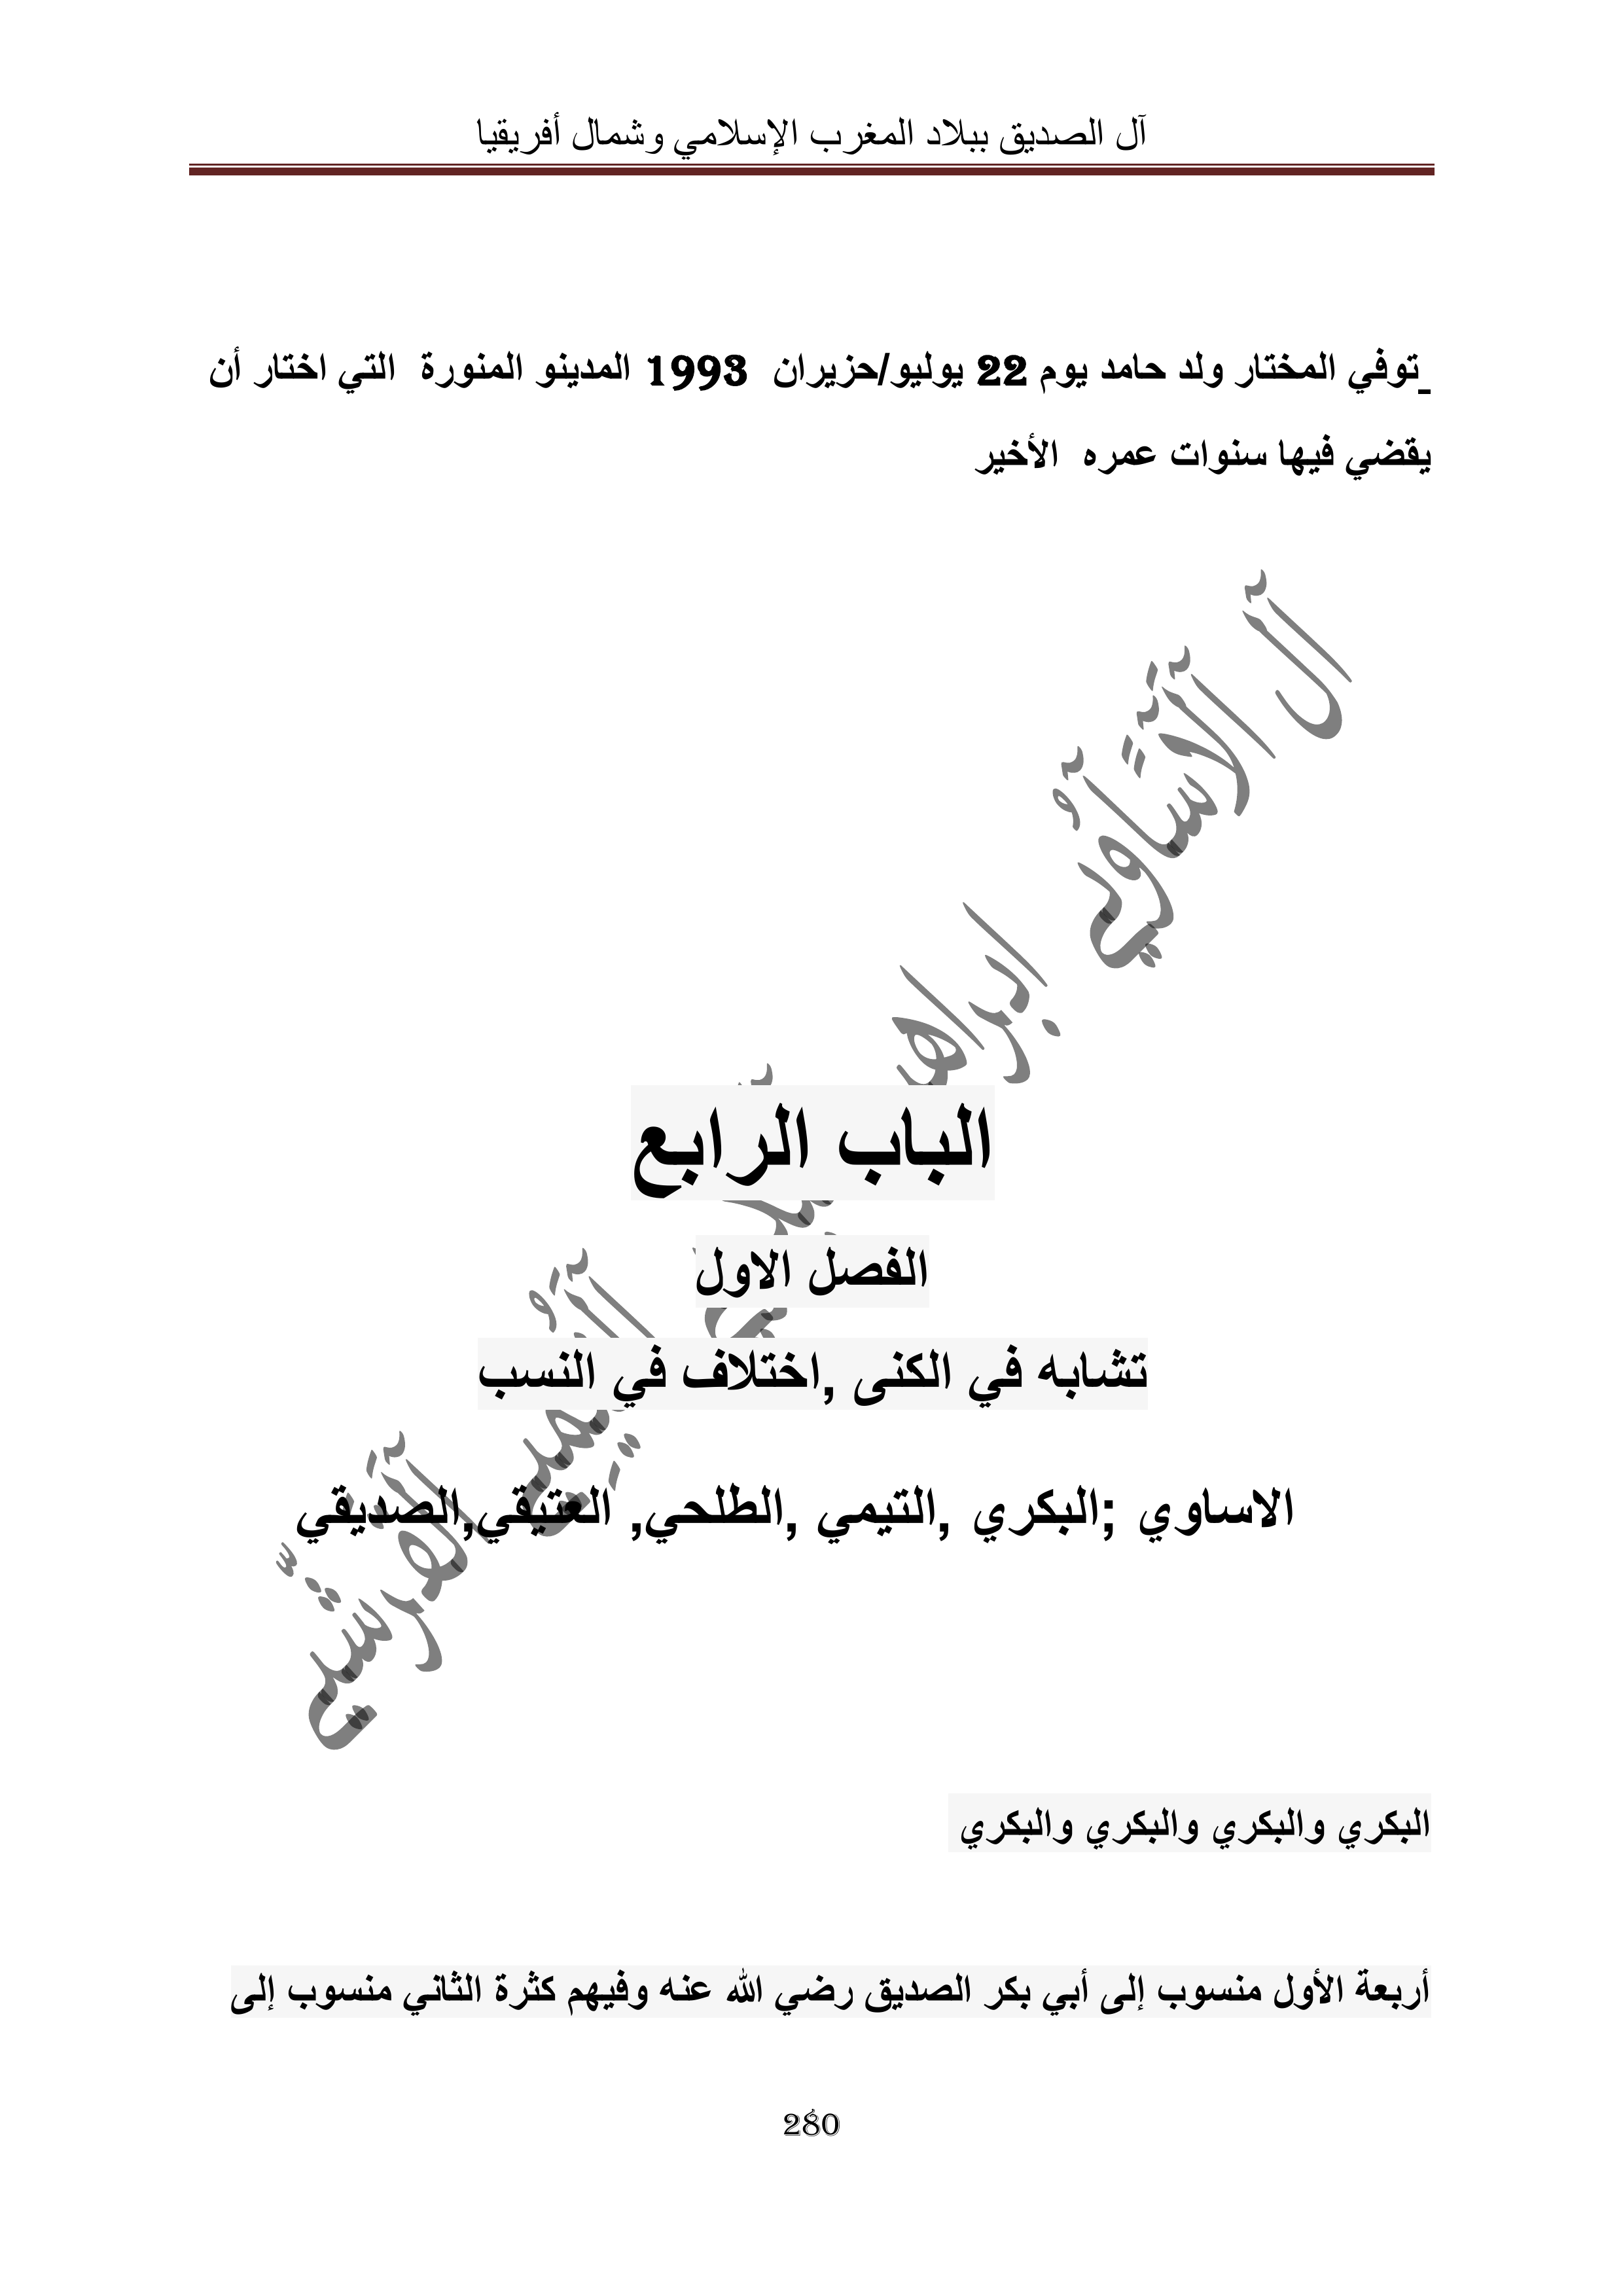 آل الصديق ببلاد المغرب الإسلامي وشمال أفريقيا
_توفي المختار ولد حامد يوم 22 يوليو/حزيران 1993 المدينو المنورة التي اختار أن
يقضي فيها سنوات عمره الأخير
الباب الرابع
الفصل الاول
تشابه في الكنى ,اختلاف في النسب
الاساوي ;البكري ,التيمي ,الطلحي, العتيقي,الصديقي
البكري والبكري والبكري والبكري
أربعة الأول منسوب إلى أبي بكر الصديق رضي الله عنه وفيهم كثرة الثاني منسوب إلى
280